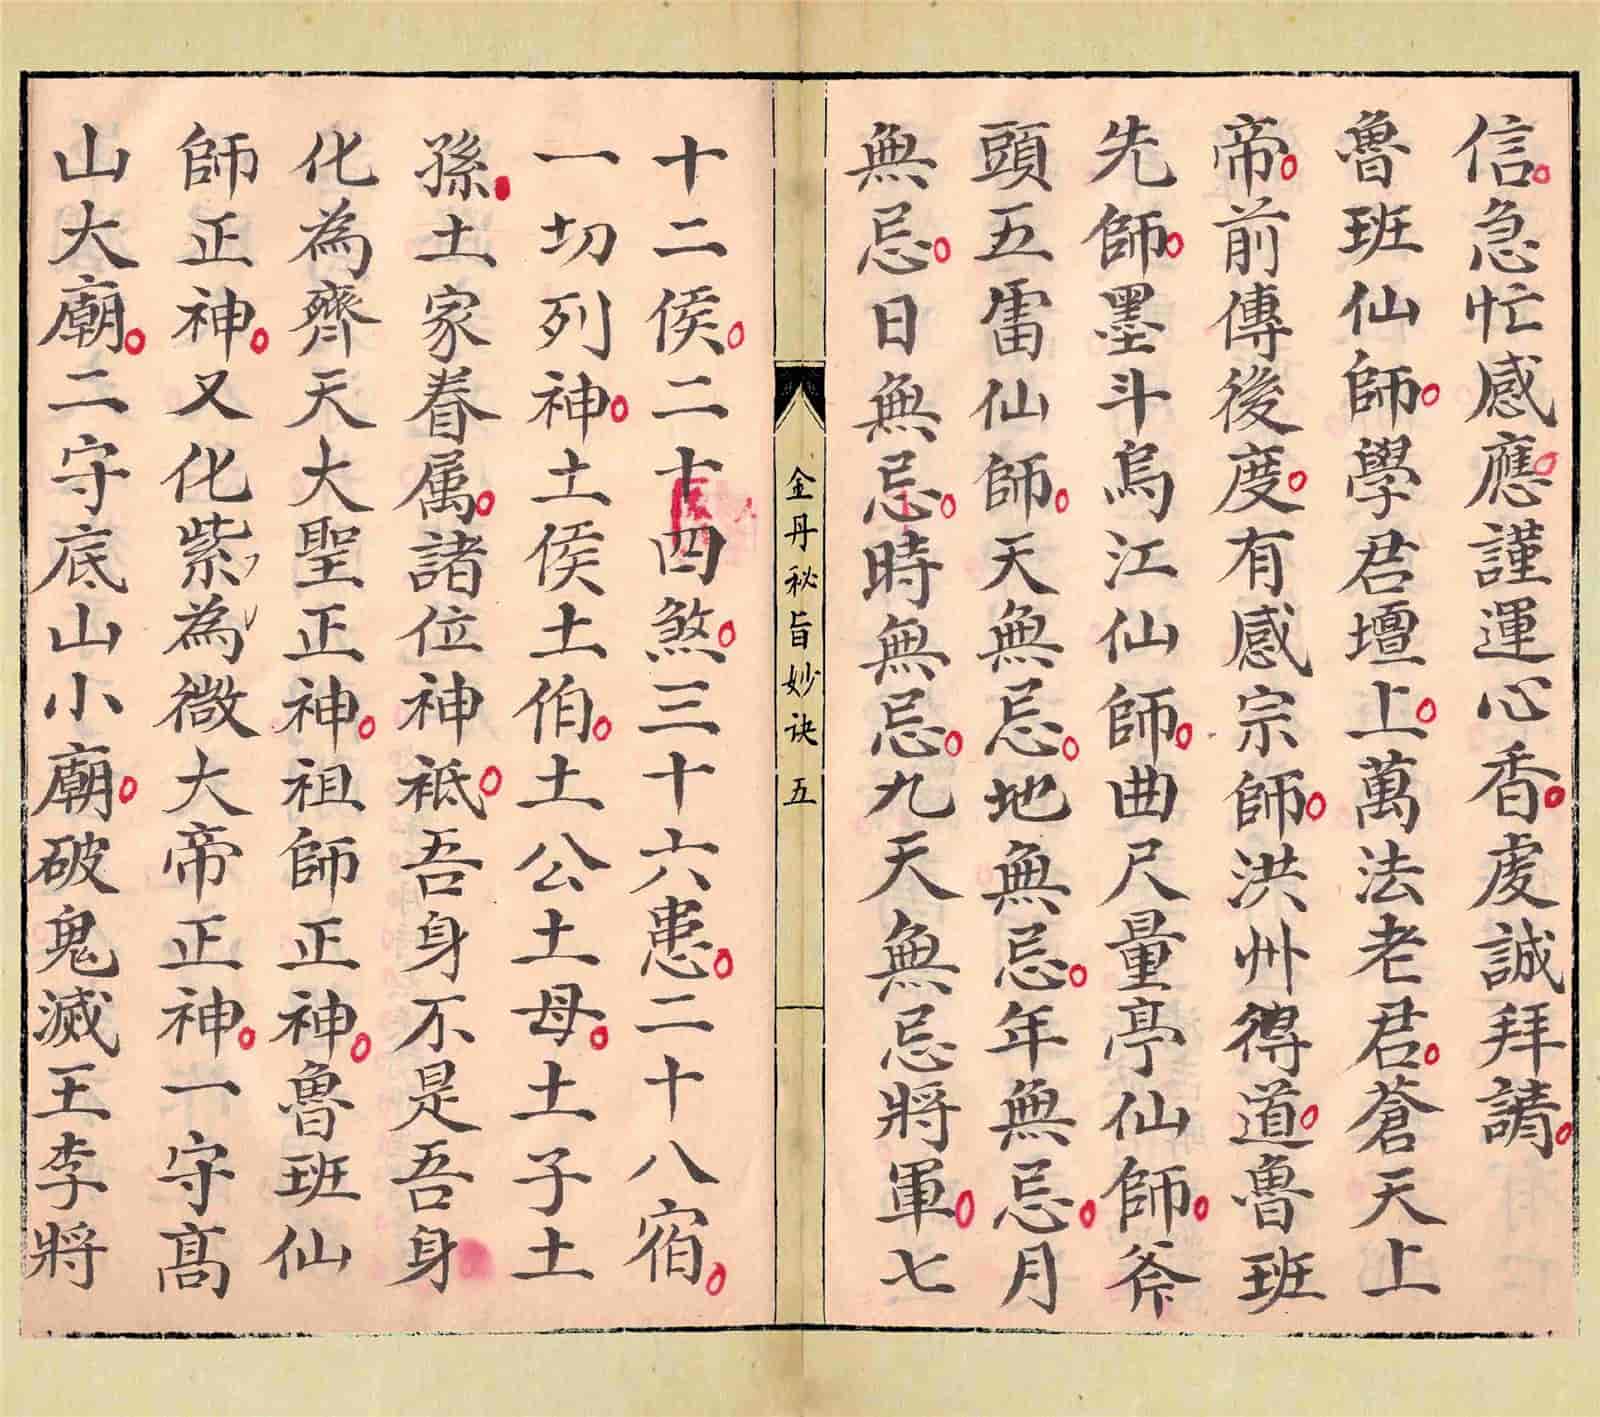 信急忙感應謹運心香虔誠拜請
魯班仙師學君壇上萬法老君蒼天上
帝前傳後度有感宗師洪州得道魯班
先師墨斗烏江仙師曲尺量亭仙師斧
頭五雷仙師天無忌地無忌年無忌月
無忌日無忌時無忌九天無忌將軍七
金丹秘旨妙訣 五
十二侯二十四煞三十六患二十八宿
一切列神土侯土伯土公土母土子土
孫土家眷属諸位神祗吾身不是吾身
化為齊天大聖正神祖師正神魯班仙
師正神又化紫為微大帝正神一守高
山大廟二守底山小廟破鬼滅王李將